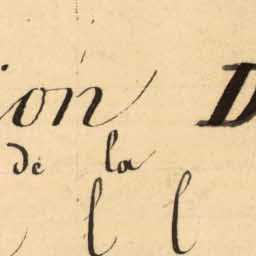 ion D
de la